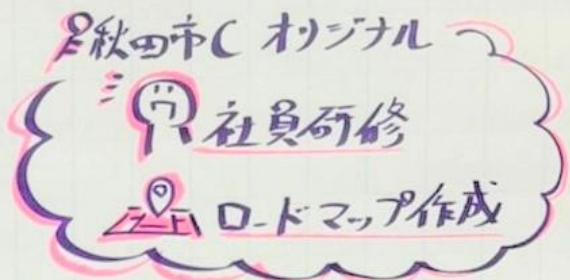 秋田市C オリジナル
社員研修
ロードマップ作成